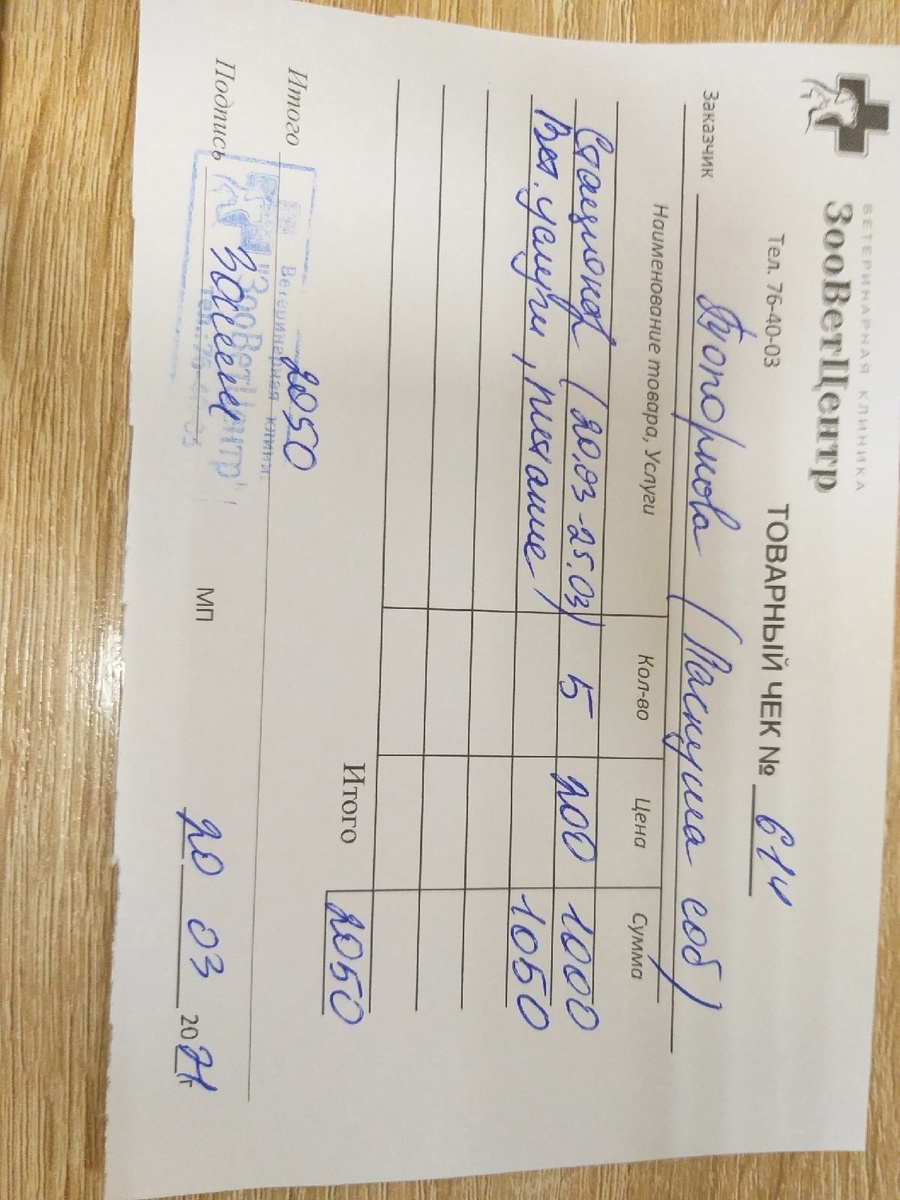 ВЕТЕРИНАРНАЯ КЛИНИКА
ЗооВетЦентр
Тел. 76-40-03
ТОВАРНЫЙ ЧЕК № 614
Заказчик Топорнова ( соб)
Наименование товара, Услуги Кол-во Цена Сумма
Стационар (20.03-25.03) 5 200 1000
Вет. услуги, питание) 1050
Итого 2050
Итого 2050
Ветеринарная клиника
"ЗооВетЦентр"
Подпись
МП
20 03 2021г